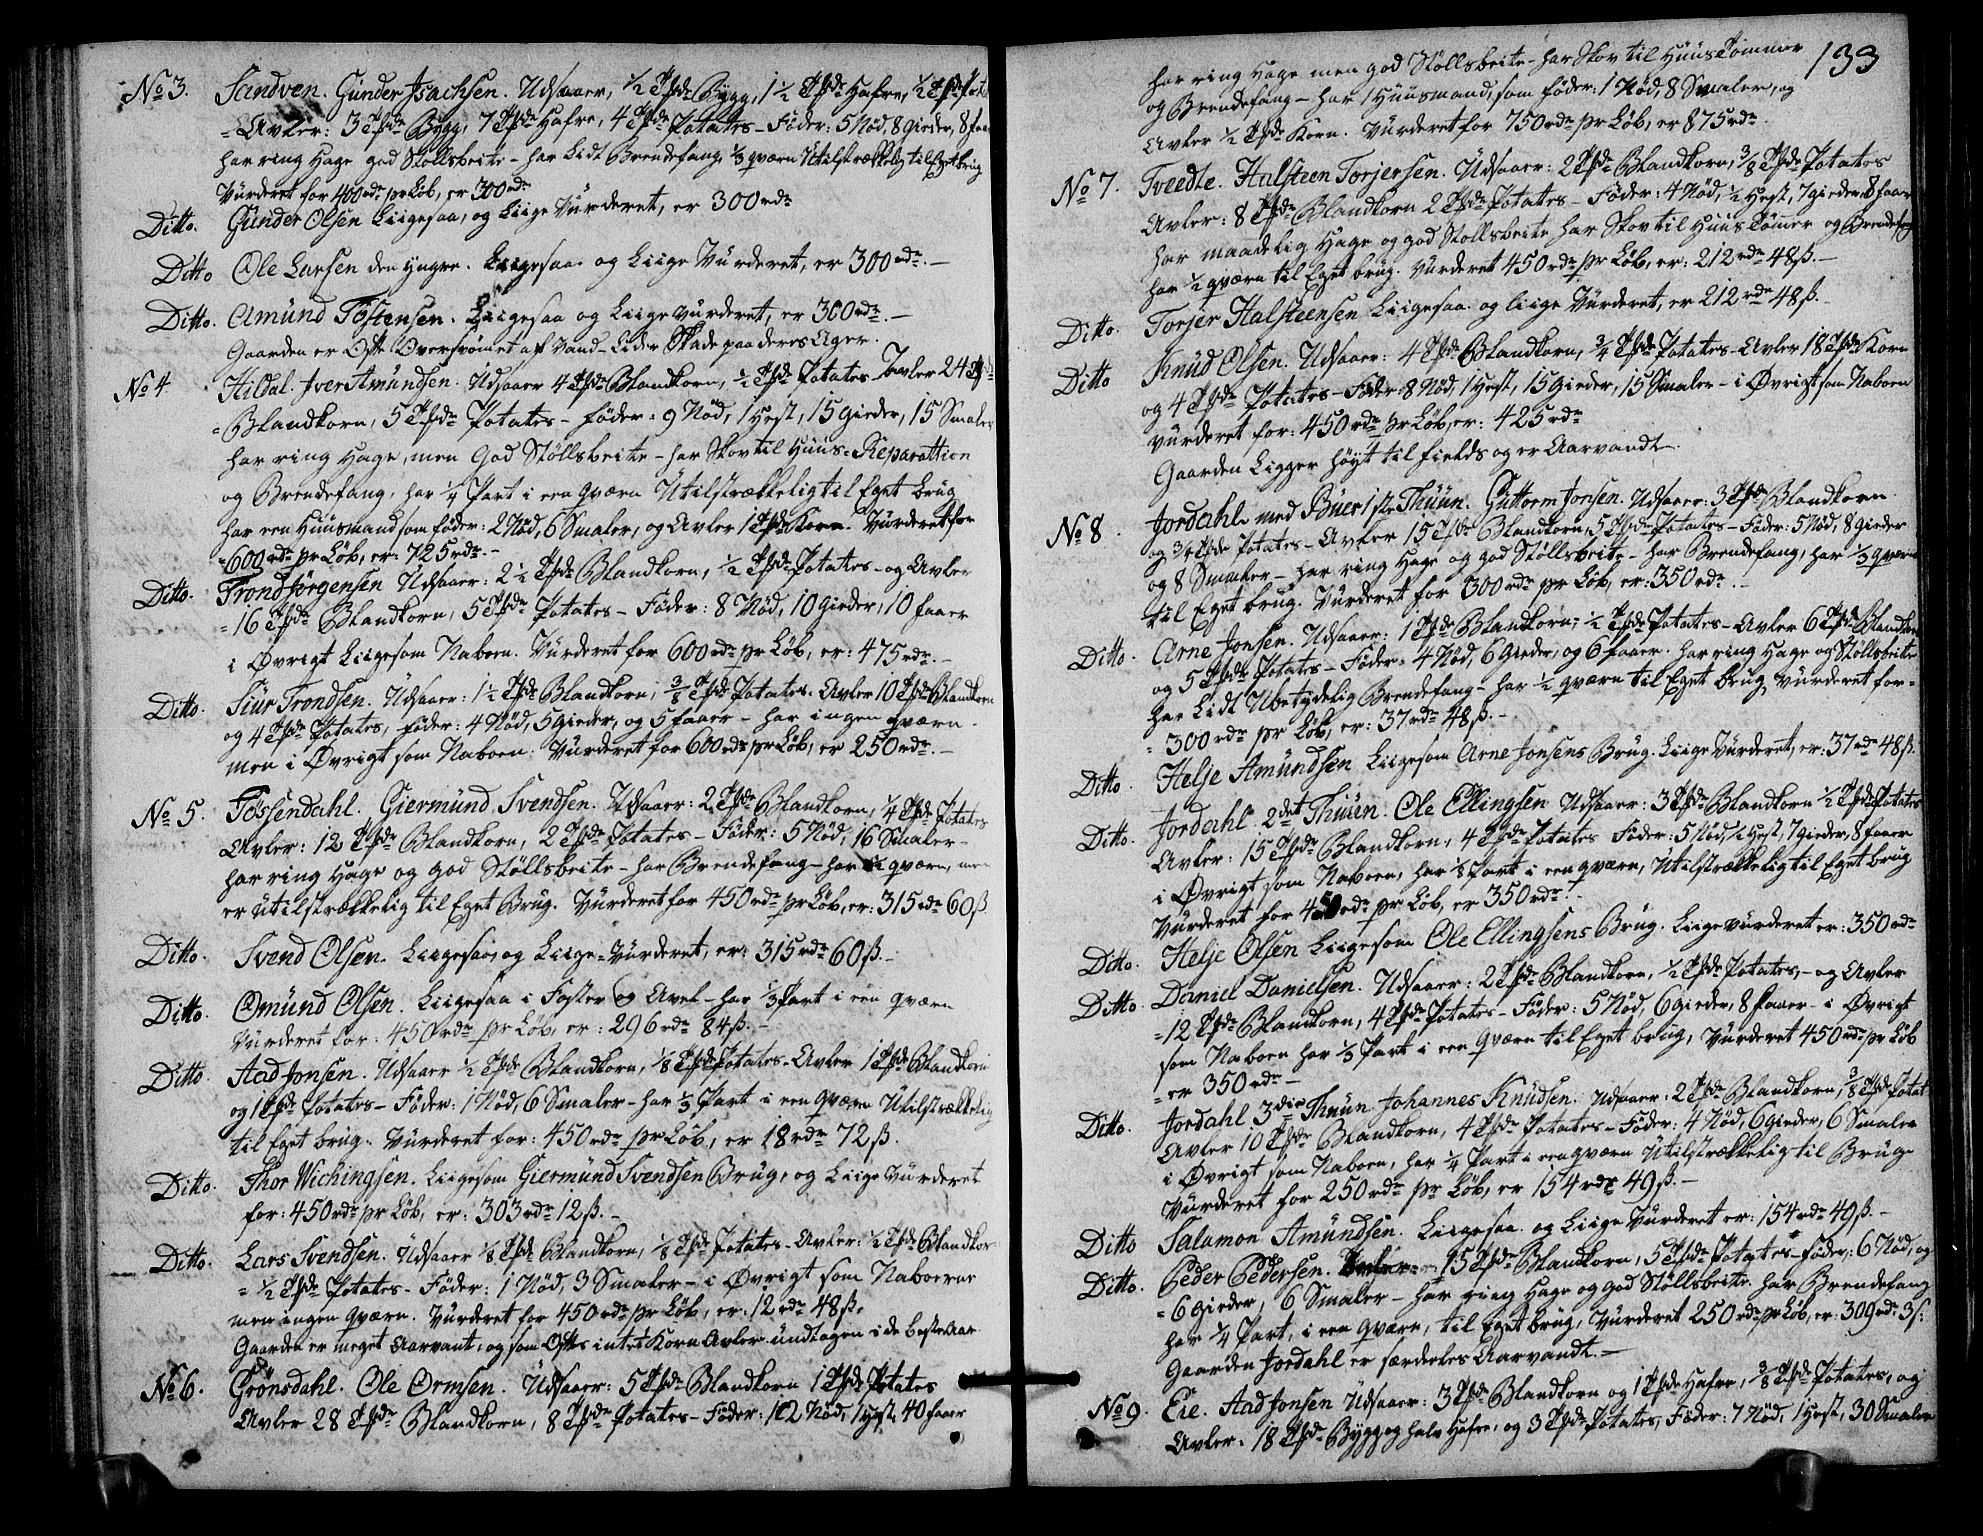 No 3. Sandven. Gunder Isachsen. Udsaaer, 1/2 Tde Bygg, 1 1/2 Tde Hafre, 1/2 Tde Potat
= Avler: 3 Tdr Bygg, 7 Tdr Hafre, 4 Tdr Potates – Föder: 5 Nöd, 8 gieder, 8 faar
har ring Hage god Stöllsbeite – har Lidt Brendefang 1/3 qværn Utilstrækkelig til Eget brug
Vurderet for 400 rdr pr Löb, er 300 rdr
Ditto. Gunder Olsen Liigesaa, og Liige Vurderet, er 300 rdr
Ditto Ole Larsen den yngre. Liigesaa og Liige Vurderet, er 300 rdr. –
Ditto. Amund Tostensen. Liigesaa og Liige vurderet, er 300 rdr. –
Gaarden er Ofte Oversvömet af Vand – Lider Skade paa deres Ager.
No 4. Hildal. Iver Amundsen. Udsaaer 4 Tdr Blandkorn, 1/2 Tde Potates – Avler 24 Tdr
= Blandkorn, 5 Tdr Potates – föder: 9 Nöd, 1 Hest, 15 gieder, 15 Smaler
har ring Hage, men God Stöllsbeite – har Skov til Huus=Reparattion
og Brendefang, har 1/4 Part i een qværn Utilstrækkelig til Eget brug
har een Huusmand som föder: 2 Nöd, 6 Smaler, og Avler 1 Tde Korn. Vurderet for
= 600 rdr pr Löb, er: 725 rdr. –
Ditto. Trond Jörgensen Udsaaer: 2 1/2 Tde Blandkorn, 1/2 Tde Potates – og Avler
= 16 Tdr Blandkorn, 5 Tdr Potates – Föder: 8 Nöd, 10 gieder, 10 faaer
i Øvrigt Liigesom Naboen. Vurderet for 600 rdr pr Löb, er: 475 rdr. –
Ditto. Siur Trondsen. Udsaaer: 1 1/2 Tde Blandkorn, 3/8 Tde Potates. Avler 10 Tdr Blandkorn
og 4 Tdr Potates, föder: 4 Nöd, 5 gieder, og 5 faaer – har ingen qværn –
men i Øvrigt som Naboen. Vurderet for 600 rdr pr Löb, er 250 rdr. –
No 5. Tössendahl. Giermund Svendsen. Udsaaer: 2 Tdr Blandkorn, 1/4 Tde Potates
Avler: 12 Tdr Blandkorn, 2 Tdr Potates – Föder: 5 Nöd, 16 Smaler –
har ring Hage og god Stöllsbeite – har Brendefang – har 1/2 qværn, men
er Utilstrækkelig til Eget Brug. Vurderet for 450 rdr pr Löb, er: 315 rdr 60 ß.
Ditto. Svend Olsen. Liigesaa, og Liige=Vurderet, er: 315 rdr 60 ß. –
Ditto. Omund Olsen. Liigesaa i Foster og Avel – har 1/3 Part i een qværn
Vurderet for: 450 rdr pr Löb, er: 296 rdr 84 ß. –
Ditto. Aad Jonsen. Udsaaer 1/2 Tde Blandkorn, 1/8 Tde Potates – Avler 1 Tde Blandkorn
og 1 Tde Potates – Föder: 1 Nöd, 6 Smaler – har 1/3 Part i een qværn Utilstrækkelig
til Eget brug. Vurderet for: 450 rdr pr Löb, er 18 rdr 72 ß.
Ditto. Thor Wichingsen. Liigesom Giermund Svendsen Brug, og Liige Vurderet
for: 450 rdr pr Löb, er: 303 rdr 12 ß. –
Ditto. Lars Svendsen. Udsaaer 1/8 Tde Blandkorn, 1/8 Tde Potates – Avler: 1/2 Tde Blandkor
= 1/2 Tde Potates – Föder: 1 Nöd, 3 Smaler – i Øvrigt som Naboerne
men ingen qværn. Vurderet for 450 rdr pr Löb, er: 12 rdr 48 ß.
Gaarden er meget Aarvant, og som Ofte intet Korn Avler undtagen i de beste Aar
No 6. Grönsdahl. Ole Ormsen. Udsaaer: 5 Tdr Blandkorn 1 Tde Potates
Avler 28 Tdr Blandkorn, 8 Tdr Potates – Föder: 12 Nöd, 1 Hest, 40 faaer
133
har ring Hage men god Stöllsbeite – har Skov til Huus Tömmer
og Brendefang – har 1 Huusmand, som föder: 1 Nöd, 8 Smaler, og
Avler 1/2 Tde Korn. Vurderet for 750 rdr pr Löb, er 875 rdr.
No 7. Tveedte. Halsteen Torjersen. Udsaaer: 2 Tdr Blandkorn, 3/8 Tde Potates
Avler: 8 Tdr Blandkorn 2 Tdr Potates – Föder: 4 Nöd, 1/2 Hest, 7 gieder 8 faar
har maadelig Hage og god Stöllsbeite har Skov til Huus Tömer og Brendefang
har 1/2 qværn til Eget brug. Vurderet 450 rdr pr Löb, er: 212 rdr 48 ß. –
Ditto. Torjer Halsteensen Liigesaa og liige Vurderet, er 212 rdr 48 ß. –
Ditto Knud Olsen. Udsaaer: 4 Tdr Blandkorn, 3/4 Tde Potates – Avler 18 Tdr Korn
og 4 Tdr Potates – Föder 8 Nöd, 1 Hest, 15 gieder, 15 Smaler – i Øvrigt som Naboen
vurderet for: 450 rdr pr Löb, er: 425 rdr
Gaarden Ligger höyt til fields og er Aarvandt
No 8 Jordahl med Buer 1ste Thuun. Guttorm Jonsen. Udsaaer: 3 Tdr Blandkorn
og 3/4 Tde Potates – Avler 15 Tdr Blandkorn, 5 Tdr Potates – Föder: 5 Nöd, 8 gieder
og 8 Smaler – har ring Hage og god Stöllsbeite – har Brendefang, har 1/3 qværn
til Eget brug. Vurderet for 300 rdr pr Löb, er: 350 rdr. –
Ditto. Arne Jonsen. Udsaaer: 1 Tde Blandkorn, 1/2 Tde Potates – Avler 6 Tdr Blandkorn
og 5 Tdr Potates – Föder: 4 Nöd, 6 gieder, og 6 faaer. har ring Hage og Stöllsbeite
har Lidt Ubetydelig Brendefang – har 1/2 qværn til Eget brug, vurderet for=
= 300 rdr pr Löb, er: 37 rdr 48 ß. –
Ditto. Helje Amundsen Liigesom Arne Jonsens Brug. Liige Vurderet, er: 37 rdr 48 ß.
Ditto. Jordahl 2det Thuun. Ole Ellingsen Udsaaer: 3 Tdr Blandkorn 1/2 Tde Potates
Avler: 15 Tdr Blandkorn, 4 Tdr Potates Föder: 5 Nöd, 1/2 Hest, 7 gieder, 8 faaer
i Øvrigt som Naboen, har 1/8 Part i een qværn, Utilstrækkelig til Eget brug
Vurderet for 450 rdr pr Löb, er 350 rdr. –
Ditto. Helje Olsen Liigesom Ole Ellingsens Brug. Liige vurderet er: 350 rdr
Ditto. Daniel Danielsen. Udsaaer: 2 Tdr Blandkorn, 1/2 Tde Potates, – og Avler
= 12 Tdr Blandkorn, 4 Tdr Potates – Föder: 5 Nöd, 6 gieder, 8 faaer – i Øvrigt
som Naboen har 1/3 Part i een qværn til Eget brug, Vurderet 450 rdr pr Löb
= er 350 rdr –
Ditto. Jordahl 3die Thuun Johannes Knudsen. Udsaaer: 2 Tdr Blandkorn, 3/8 Tde Potat
Avler 10 Tdr Blandkorn, 4 Tdr Potates – Föder: 4 Nöd, 6 gieder, 6 Smaler
i Øvrigt som Naboen, har 1/4 Part i een qværn Utilstrækkelig til Bruge
Vurderet for 250 rdr pr Löb, er 154 rdr 49 ß. –
Ditto Salamon Amundsen. Liigesaa og Liige Vurderet er: 154 rdr 49 ß. –
Ditto. Peder Pedersen. Avler 15 Tdr Blandkorn, 5 Tdr Potates – föder: 6 Nöd, og
= 6 gieder, 6 Smaler – har ring Hage og god Stöllsbeite har Brendefang
har 1/4 Part, i een qværn, til Eget brug, Vurderet 250 rdr pr Löb, er: 309 rdr 3 ß:
Gaarden Jordahl er særdeeles Aarvandt. –
No 9. Eie. Aad Jonsen Udsaaer: 3 Tdr Blandkorn og 1 Tde Hafre, 3/8 Tde Potates, og
Avler: 18 Tdr Bygg og halv Hafre, og 3 Tdr Potates, Föder: 7 Nöd, 1 Hest, 30 Smaler